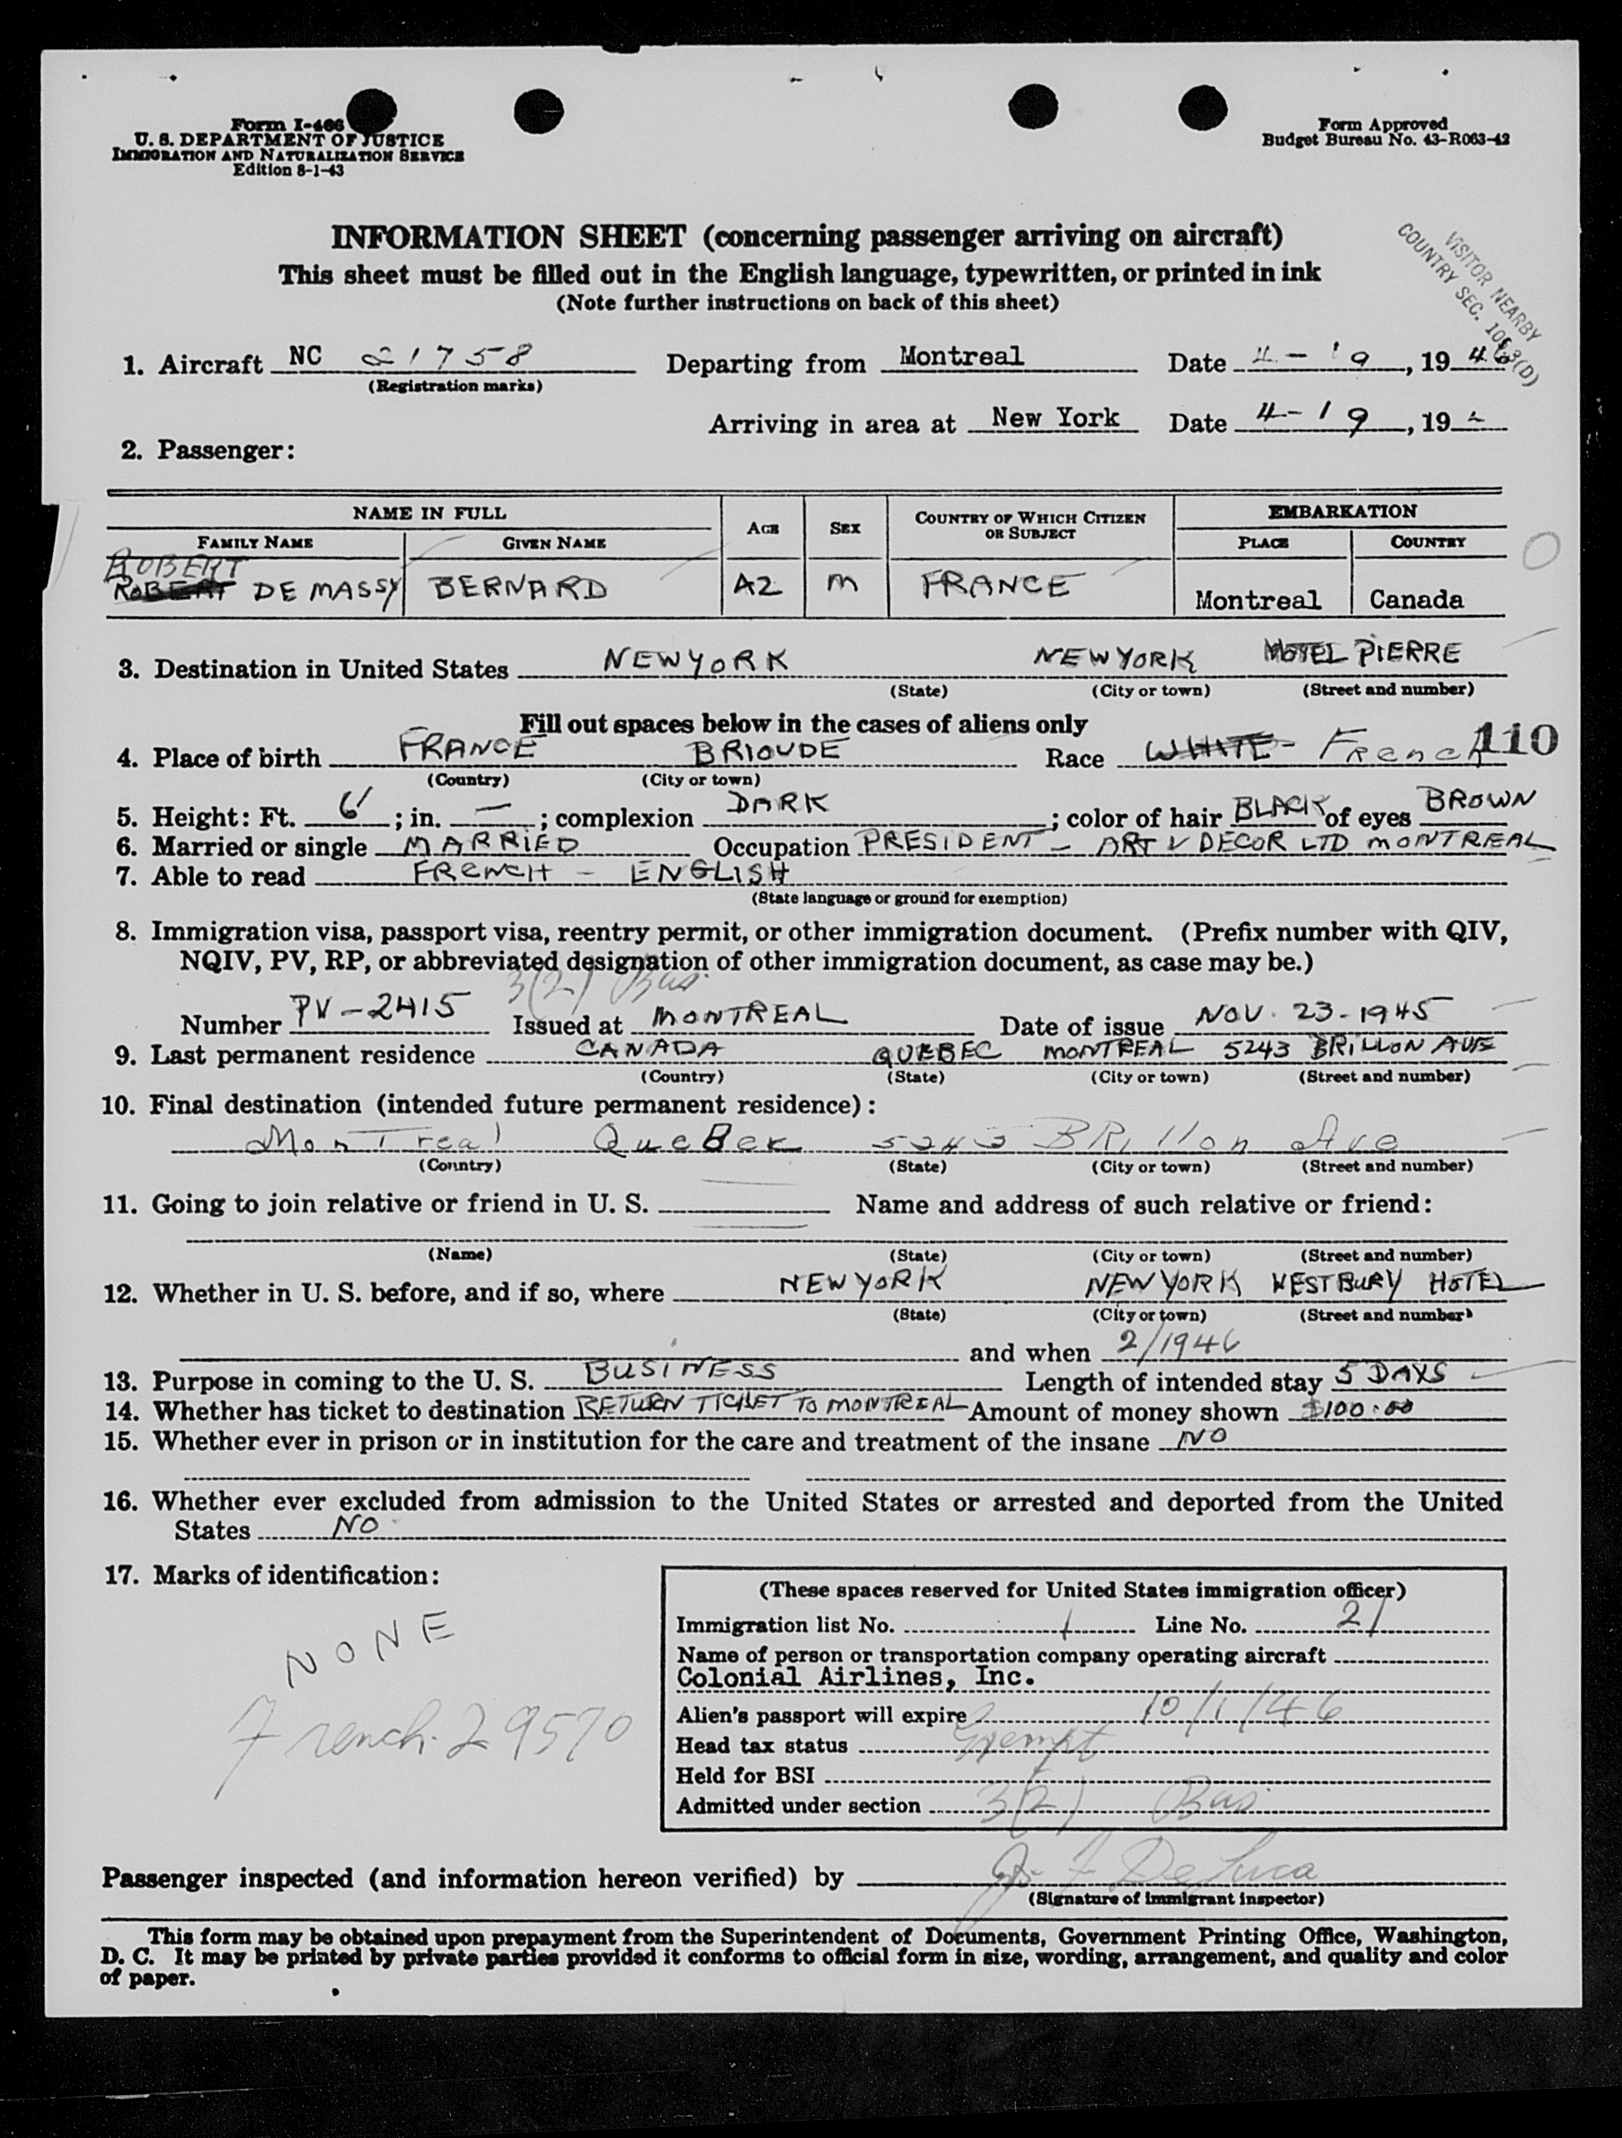 Form I-466
U. S. DEPARTMENT OF JUSTICE
IMMIGRATION AND NATURALIZATION SERVICE
Edition 8-1-43
Form Approved
Budget Bureau No. 43-R063-42
INFORMATION SHEET (concerning passenger arriving on aircraft)
This sheet must be filled out in the English language, typewritten, or printed in ink
(Note further instructions on back of this sheet)
VISITOR NEARBY
COUNTRY SEC. 10 3(D)
1. Aircraft NC 21758 Departing from Montreal Date 4-19, 1946
(Registration marks)
Arriving in area at New York Date 4-19, 19
2. Passenger:
NAME IN FULL AGE SEX COUNTRY OF WHICH CITIZEN OR SUBJECT EMBARKATION
FAMILY NAME GIVEN NAME PLACE COUNTRY
ROBERT
ROBERT DE MASSY BERNARD 42 M FRANCE Montreal Canada
3. Destination in United States NEW YORK NEW YORK HOTEL PIERRE
(State) (City or town) (Street and number)
Fill out spaces below in the cases of aliens only
4. Place of birth FRANCE BRIOUDE Race WHITE - French 110
(Country) (City or town)
5. Height: Ft. 6' ; in. — ; complexion DARK ; color of hair BLACK of eyes BROWN
6. Married or single MARRIED Occupation PRESIDENT - ART & DECOR LTD MONTREAL
7. Able to read FRENCH - ENGLISH
(State language or ground for exemption)
8. Immigration visa, passport visa, reentry permit, or other immigration document. (Prefix number with QIV,
NQIV, PV, RP, or abbreviated designation of other immigration document, as case may be.)
3(2) Bus.
Number PV-2415 Issued at MONTREAL Date of issue NOV. 23-1945
9. Last permanent residence CANADA QUEBEC MONTREAL 5243 BRILLON AVE
(Country) (State) (City or town) (Street and number)
10. Final destination (intended future permanent residence):
MonTreal QueBek 5243 BRillon Ave
(Country) (State) (City or town) (Street and number)
11. Going to join relative or friend in U. S. Name and address of such relative or friend:
(Name) (State) (City or town) (Street and number)
12. Whether in U. S. before, and if so, where NEW YORK NEW YORK WESTBURY HOTEL
(State) (City or town) (Street and number)
and when 2/1946
13. Purpose in coming to the U. S. BUSINESS Length of intended stay 5 DAYS
14. Whether has ticket to destination RETURN TICKET TO MONTREAL Amount of money shown $100.00
15. Whether ever in prison or in institution for the care and treatment of the insane NO
16. Whether ever excluded from admission to the United States or arrested and deported from the United
States NO
17. Marks of identification:
NONE
French. 29570
(These spaces reserved for United States immigration officer)
Immigration list No. 1 Line No. 21
Name of person or transportation company operating aircraft
Colonial Airlines, Inc.
Alien's passport will expire 10/1/46
Head tax status Exempt
Held for BSI
Admitted under section 3(2) Bus
Passenger inspected (and information hereon verified) by J. F. DeLuca
(Signature of immigrant inspector)
This form may be obtained upon prepayment from the Superintendent of Documents, Government Printing Office, Washington,
D. C. It may be printed by private parties provided it conforms to official form in size, wording, arrangement, and quality and color
of paper.